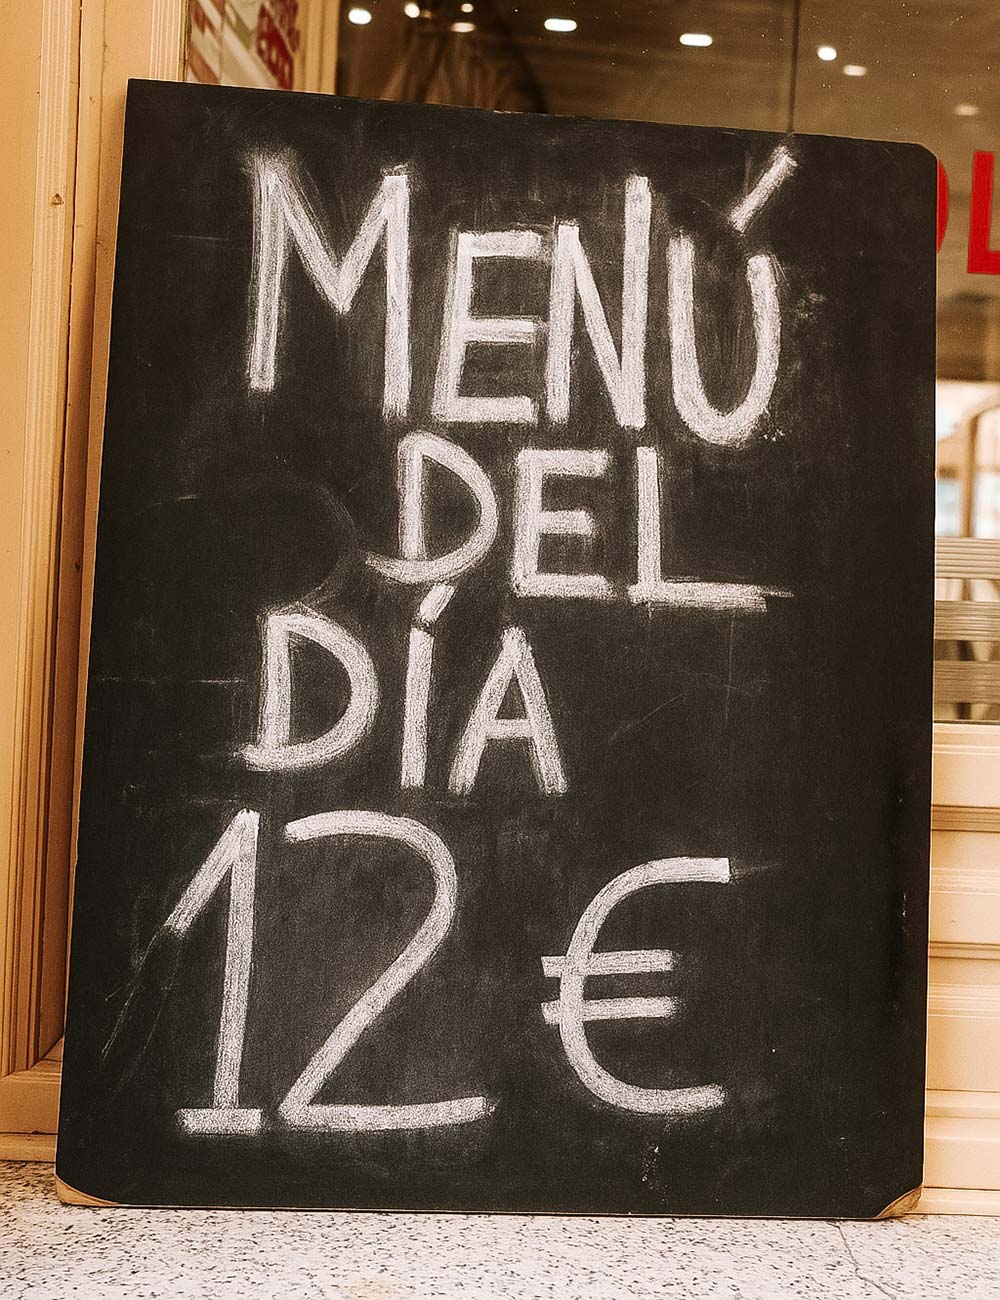 MENÚ
DEL
DÍA
12 €